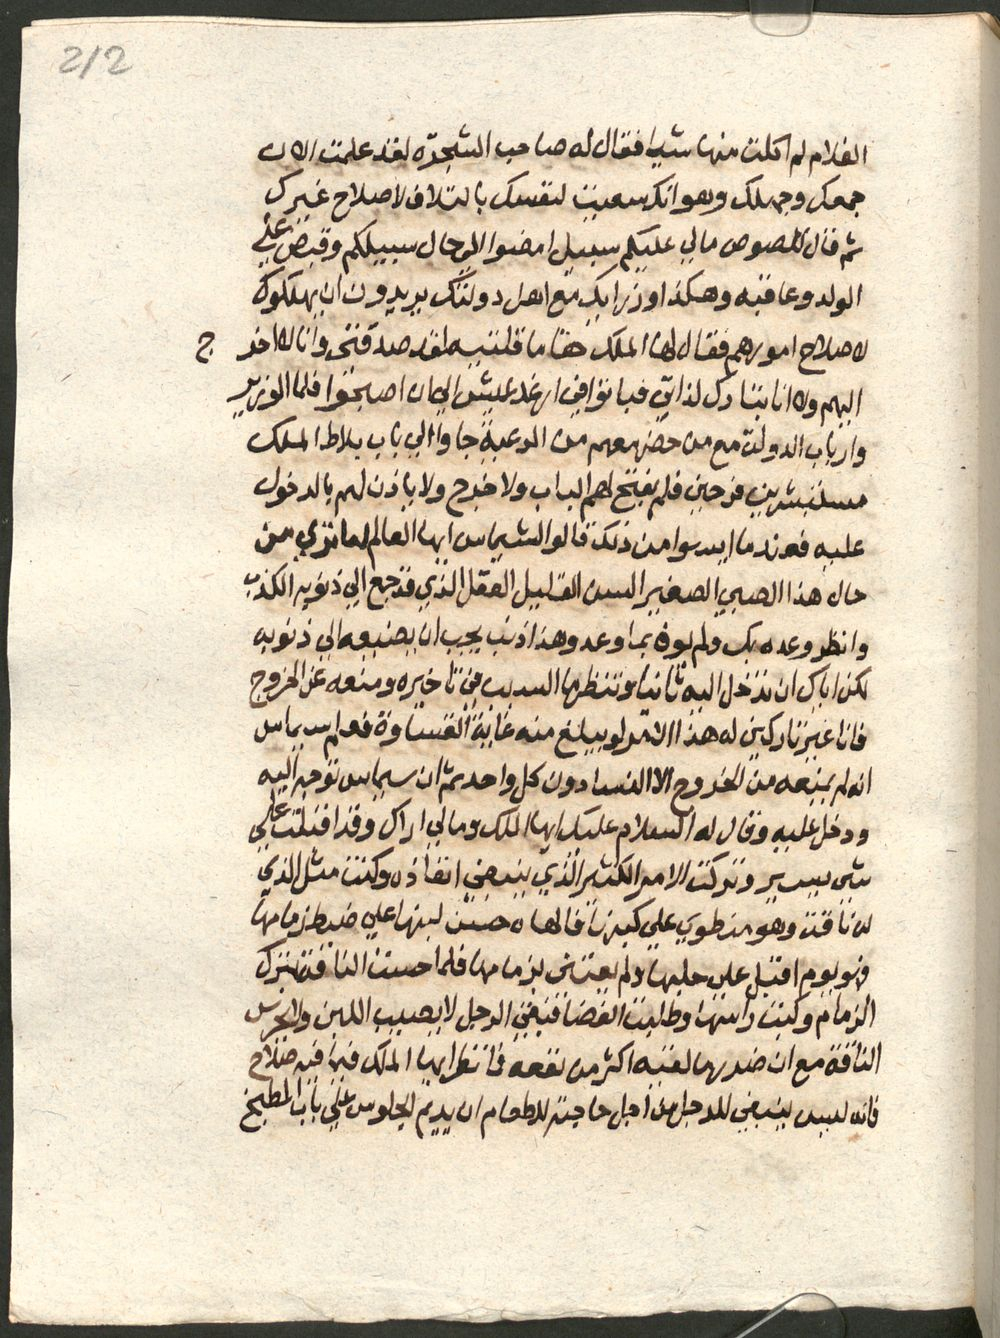 212
الغلام لم اكلت منها شيا فقال له صاحب الشجره لقد علمت الان
جمعك وجهلك وهو انك سعيت لنفسك بالتلاف لاصلاح غيرك
ثم قال للصوص مالي عليكم سبيل امضوا الي حال سبيلكم وقبض علي
الولد وعاقبه وهكذا وزرايك مع اهل دولتك يريدون ان يهلكوك
لاصلاح امورهم فقال لها الملك حقا ما قلتيه لقد صدقتي وانا لا اخرج
اليهم ولا انا بتارك لذاتي فباتوا في ارغد عيش الي ان اصبحوا فلما الوزير
وارباب الدولة مع من حضر معهم من الرعية جاوا الي باب بلاط الملك
مستبشرين فرحين فلم يفتح لهم الباب ولا خرج ولا ياذن لهم بالدخول
عليه فعندما ايسوا من ذلك قالوا لشيماس ايها العالم اما تري من
حال هذا الصبي الصغير السن القليل العقل الذي قد جمع الي ذنوبه الكذب
وانظر وعده بك ولم يوف بما وعد وهذا ذنب يجب ان يضيفه الي ذنوبه
لكن اياك ان تدخل اليه ثانيا وتنظر ما السبب في تاخيره ومنعه عن الخروج
فانا غير تاركين له هذا الامر لو يبلغ منه غاية القساوة فعلم سيماس
انه لم يمنعه من الخروج الا النسا دون كل واحد ثم ان سيماس توجه اليه
ودخل عليه وقال له السلام عليك ايها الملك ومالي اراك وقد اقبلت علي
شي يسير وتركت الامر الكثير الذي ينبغي انفاذه وكنت مثل الذي
له ناقة وهو منطوي علي كبرها فالهاه حسن لبنها علي ضبط زمامها
فهو يوم اقبل علي حلبها ولم يعتني بزمامها فلما احست الناقة بترك
الزمام وكبت راسها وطلبت الفضا فبقي الرجل لا يصيب اللبن ولا يحرس
الناقة مع ان ضررها لقيه اكثر من نفعه فانظر ايها الملك فيما فيه صلاح
فانه ليس ينبغي للرجل من اجل حاجته للطعام ان يديم الجلوس علي باب المطبخ